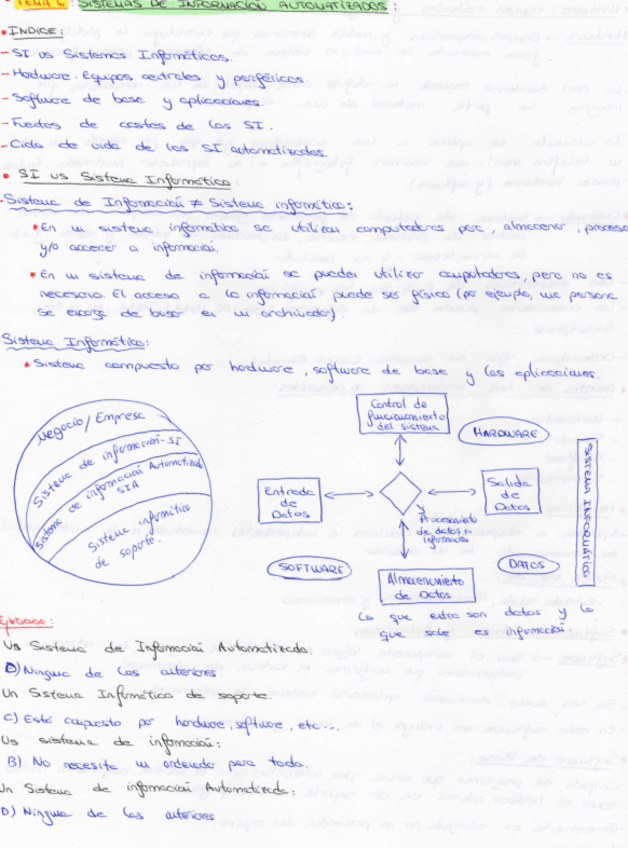 TEMA 6: SISTEMAS DE INFORMACIÓN AUTOMATIZADOS:
• INDICE:
- SI vs Sistemas Informáticos.
- Hardware. Equipos centrales y periféricos.
- Software de base y aplicaciones.
- Fuentes de costes de los SI.
- Ciclo de vida de los SI automatizados.
• SI vs Sistema Informático:
- Sistema de Información ≠ Sistema informático:
* En un sistema informático se utilizan computadores para, almacenar, procesar
y/o acceder a información.
* En un sistema de información se pueden utilizar computadores, pero no es
necesario. El acceso a la información puede ser físico (por ejemplo, una persona
se encarga de buscar en un archivador).
Sistema Informático:
* Sistema compuesto por hardware, software de base y las aplicaciones.
Negocio / Empresa
Sistema de información - SI
Sistema de información Automatizado
SIA
Sistema informático
de soporte.
Control de
funcionamiento
del sistema
HARDWARE
Entrada
de
Datos
Salida
de
Datos
Procesamiento
de datos
información
SOFTWARE
DATOS
Almacenamiento
de Datos
SISTEMA INFORMÁTICO
Lo que entra son datos y lo
que sale es información
Ejercicios:
Un Sistema de Información Automatizado:
D) Ninguna de las anteriores.
Un Sistema Informático de soporte.
C) Está compuesto por hardware, software, etc...
Un sistema de información:
B) No necesita un ordenador para todo.
Un Sistema de información Automatizado:
D) Ninguna de las anteriores